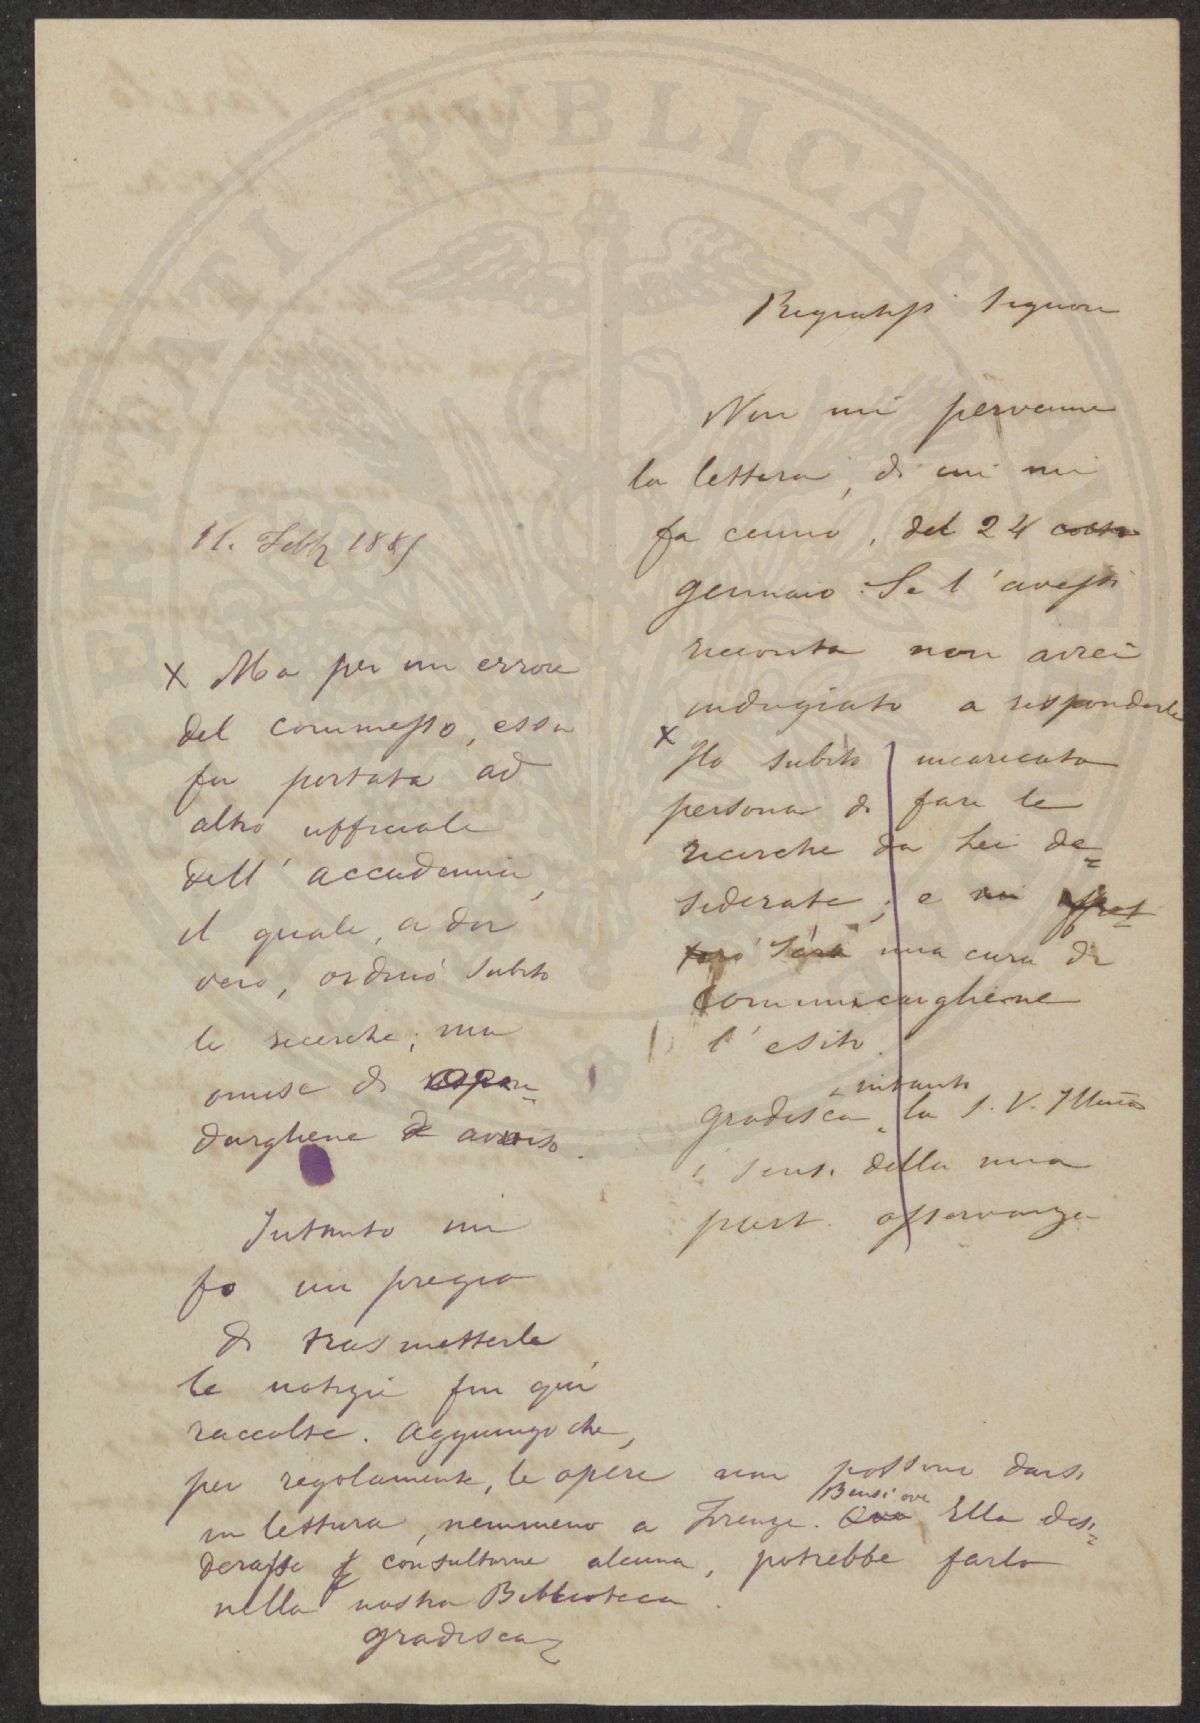 11. Febb 1885
Signore
Non mi pervenne
la lettera, di cui mi
fa cenno, del 24 corr
gennaio. Se l'avessi
ricevuta non avrei
indugiato a risponderle
x
Ho subito incaricata
persona di fare le
ricerche da Lei de=
siderate; e mi affret
terò sarà mia cura di
comunicarghiene
l'esito.
intanto
Gradisca la S. V. Illma
i sensi della mia
osservanza
x Ma per un errore
del commesso, essa
fu portata ad
altro ufficiale
dell'Accademia,
il quale, a dir
vero, ordinò subito
le ricerche; ma
omise di
darghene avviso.
Intanto mi
fo un pregio
di trasmetterle
le notizie fin qui
raccolte. Aggiungo che,
per regolamento, le opere non possono darsi
Bensì ove
in lettura, nemmeno a Firenze. Ove Ella desi=
derasse consultarne alcuna, potrebbe farlo
nella nostra Biblioteca.
Gradisca